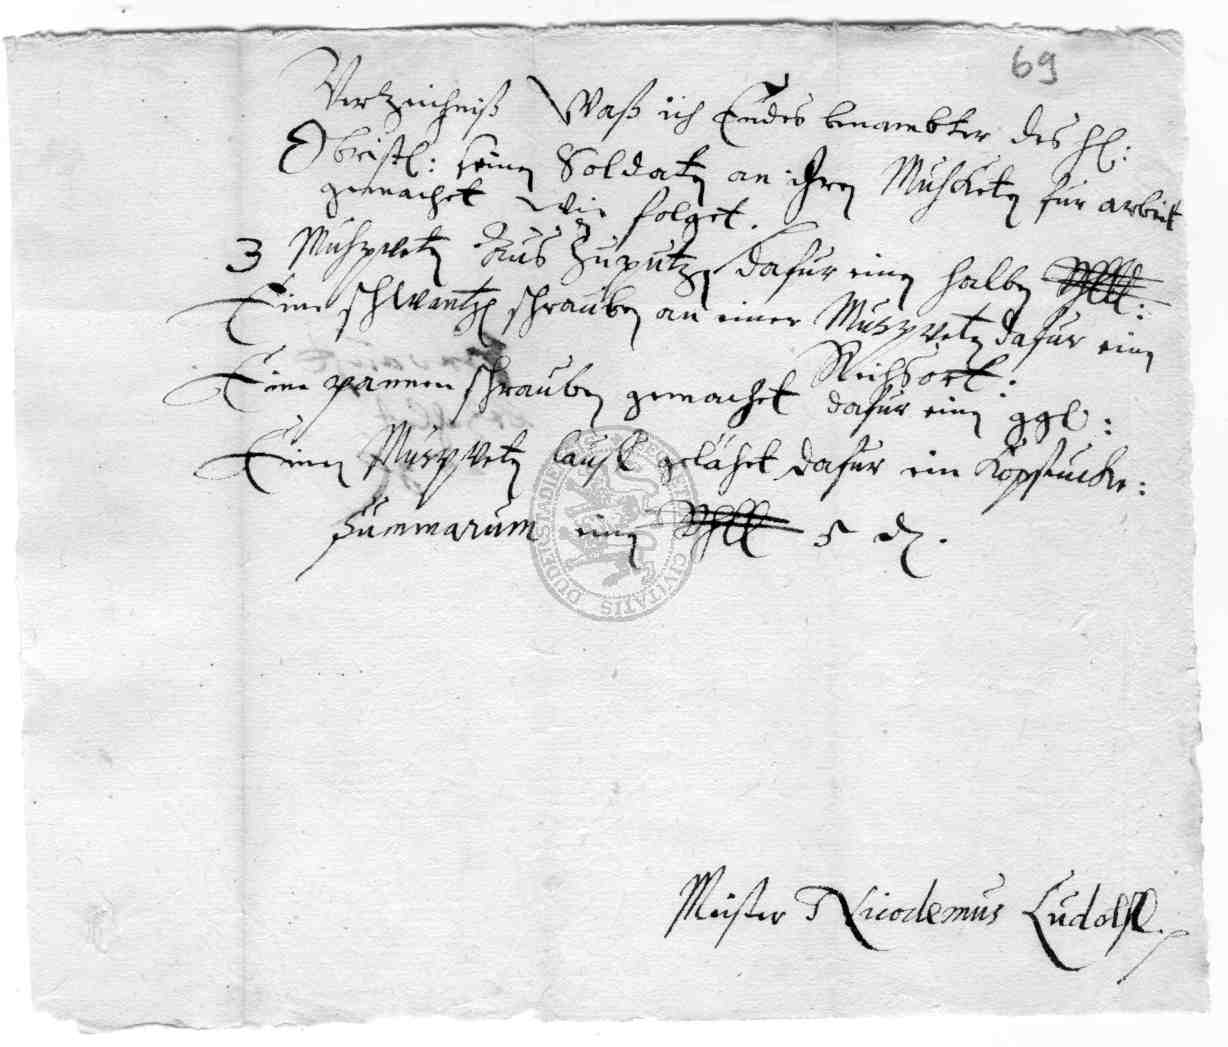 69
Vertzeichniß Waß ich Endes benambter des H:
Obristl: seinen Soldaten an ihren Mußketen für arbeit
gemachet wie folget.
3 Mußqueten Auszuputzen dafur einen halben Rthll:
Eine schwantz schrauben an einer Musqveten dafur ein
Reichsort.
Eine pannen schrauben gemachet dafur ein ggl:
Einen Musqveten lauff gelöhet dafur ein Kopfstucke:
Summarum ein Rthll 5 d.
Meister Nicodemus Ludolff.
SIGILLUM CIVITATIS DUDERSTADIENSIS